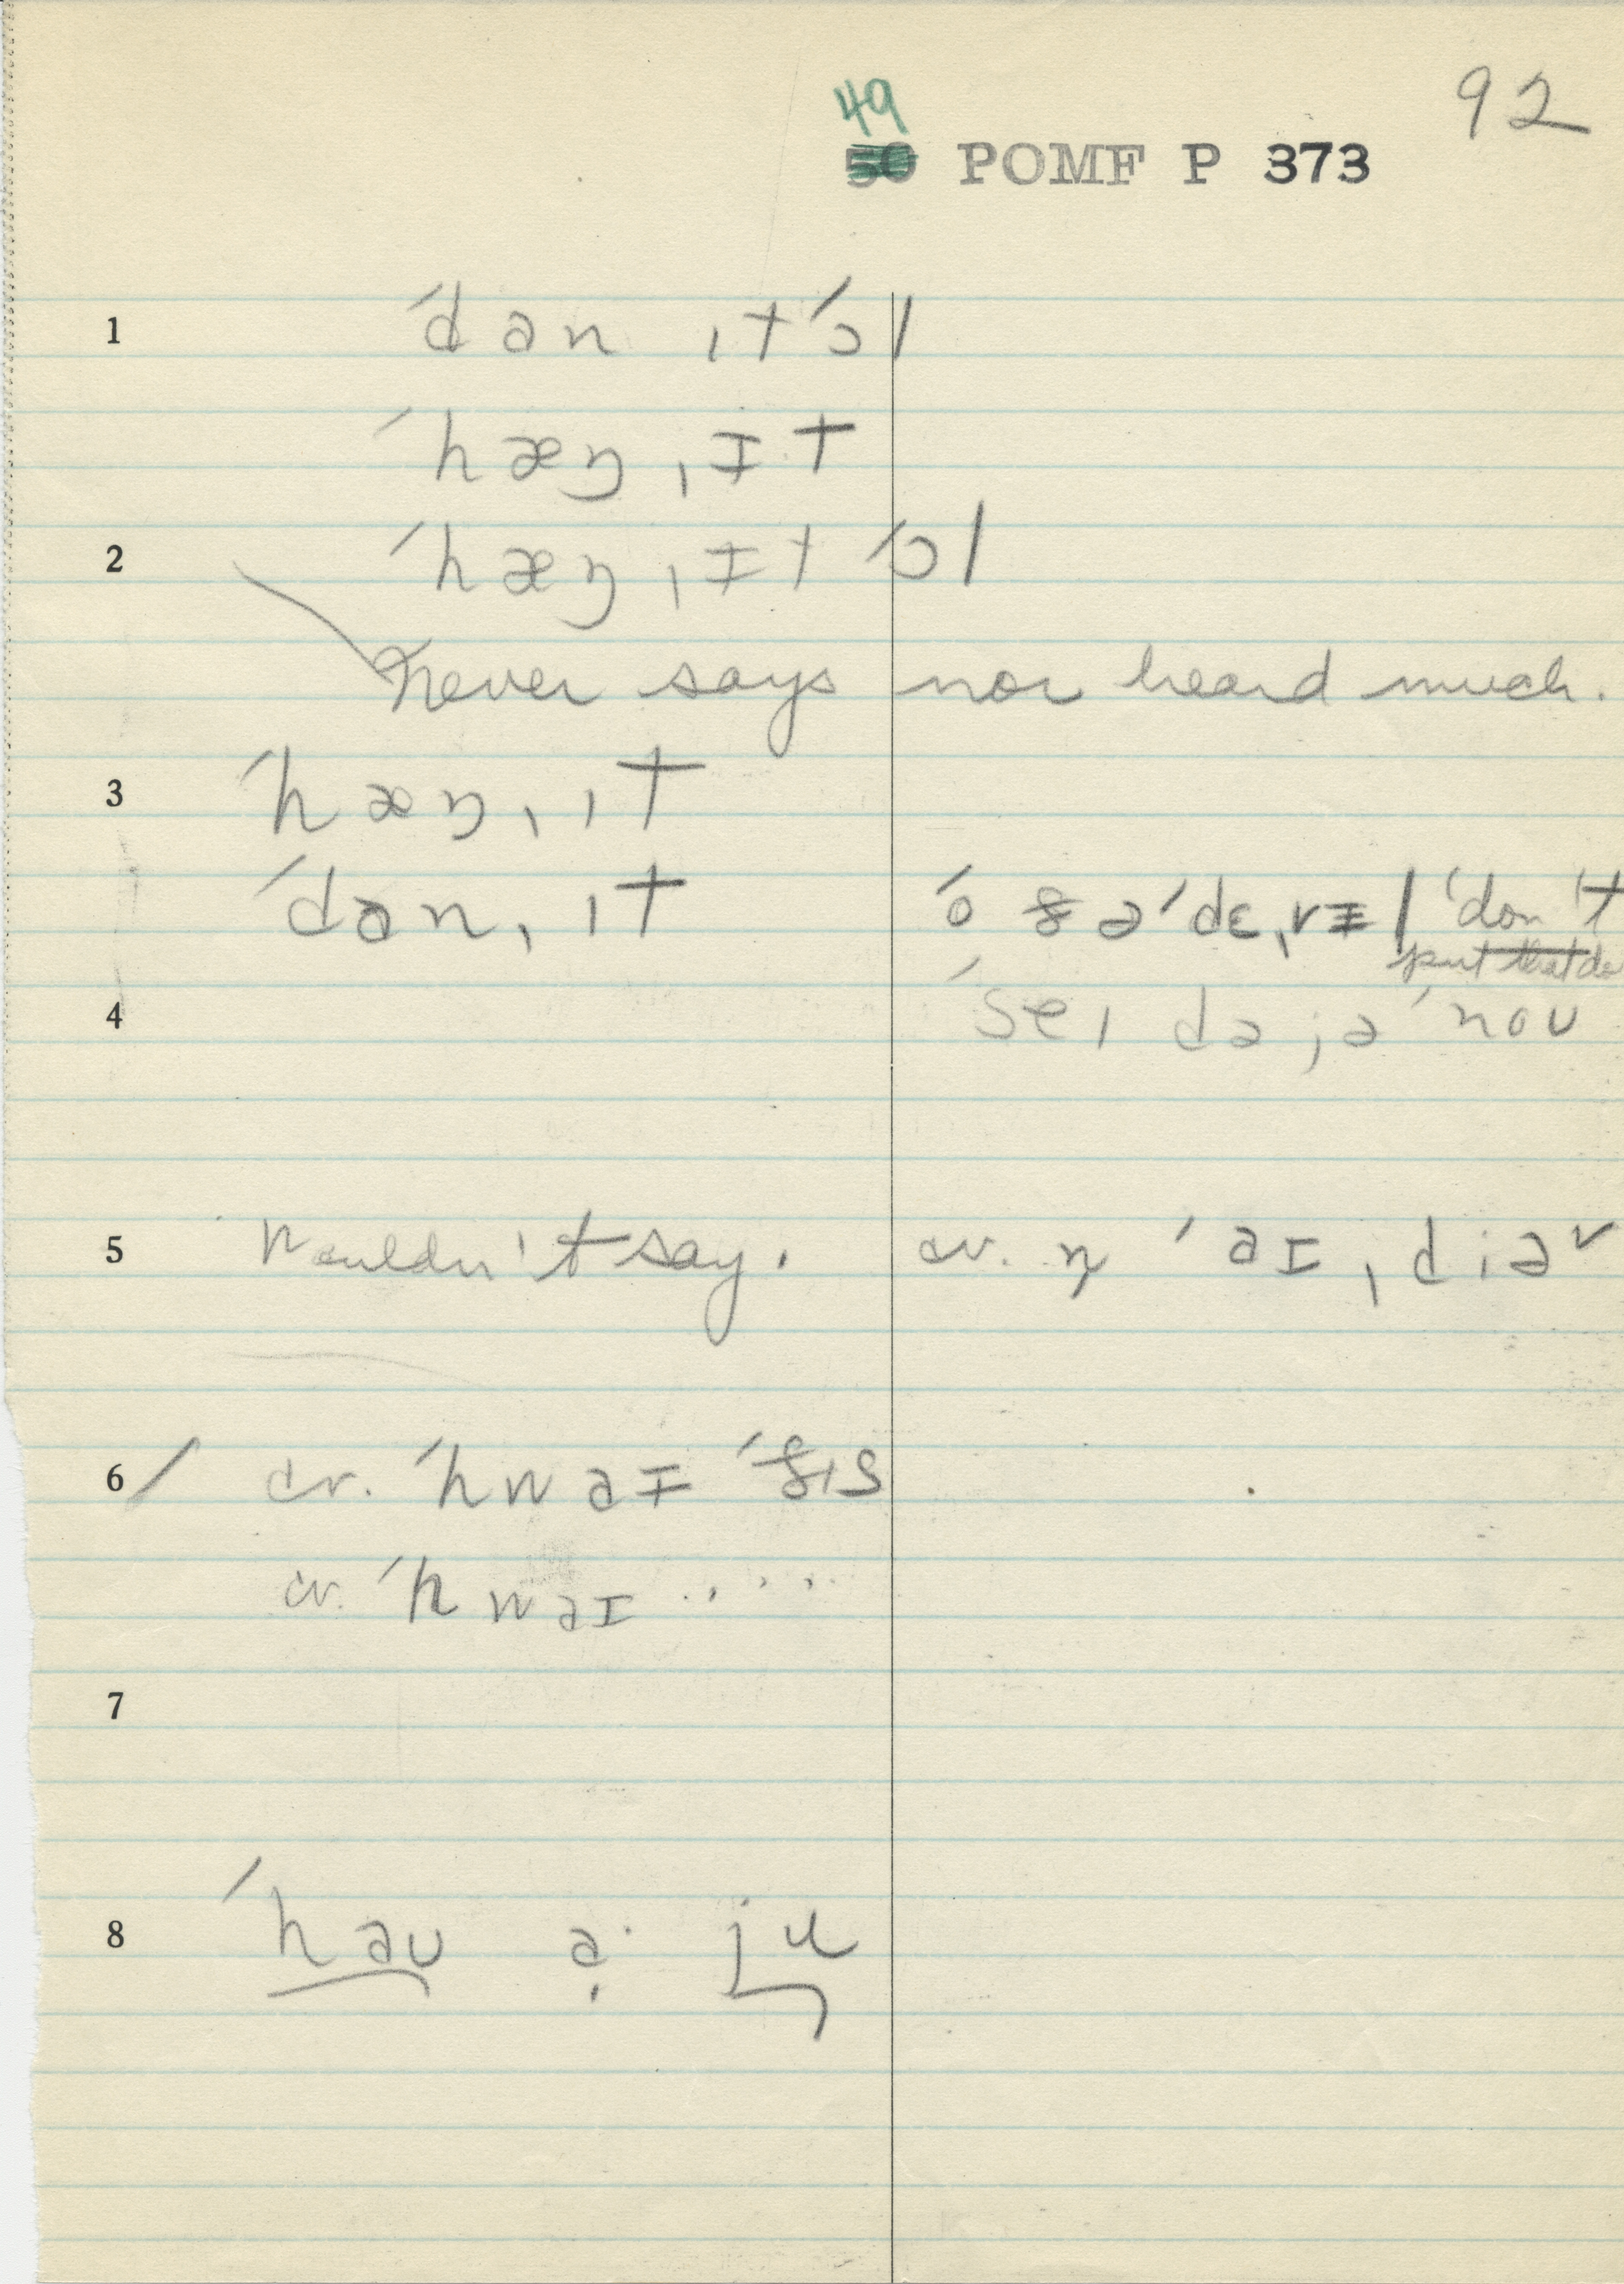 92
49
50 POMF P 373
1 ˈdan ˌɪtˈɔl
ˈhæŋ ˌɪt
2 ˈhæŋ ˌɪt ˈɔl
Never says nor heard much.
3 ˈhæŋ ˌɪt
ˈdan ˌɪt ˈɔ ðə ˈdɛˌvɪl 'don't
put that do
4 ˈseɪ də jə ˈnoʊ
5 Wouldn't say. cv. ŋ ˈaɪˌdiəʳ
6 / cv. ˈhwaɪ ˈjɪs
cv. ˈhwaɪ .....
7
8 ˈhaʊ ə ju